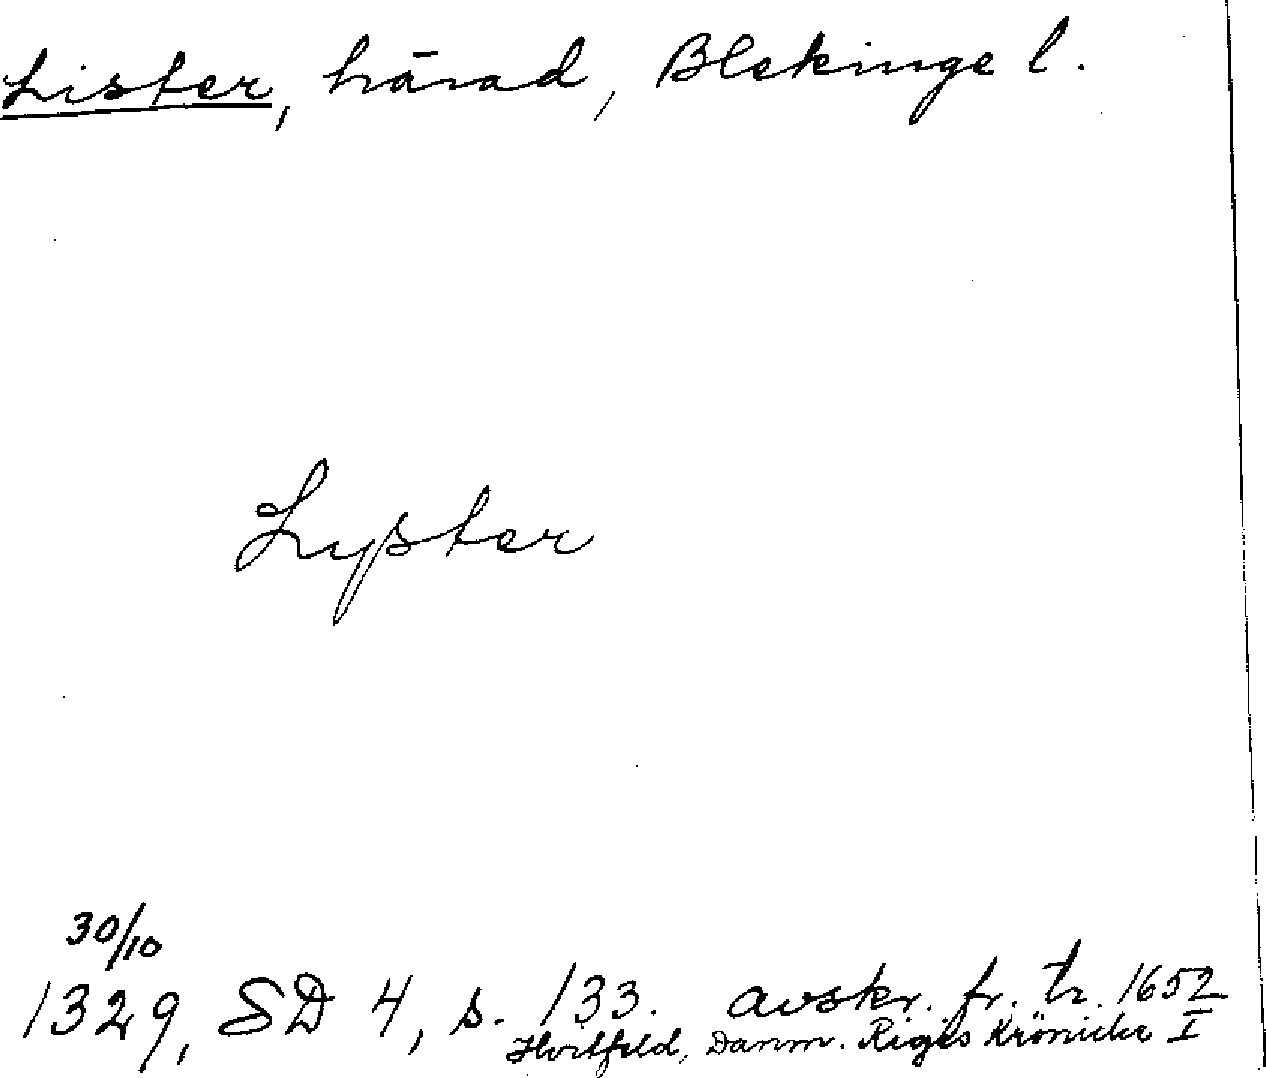 Lister, härad, Blekinge l.
Lyster
30/10
1329, SD 4, s. 133. avskr. fr. tr. 1652
Hvitfeld, Danm. Riges Krönicke I